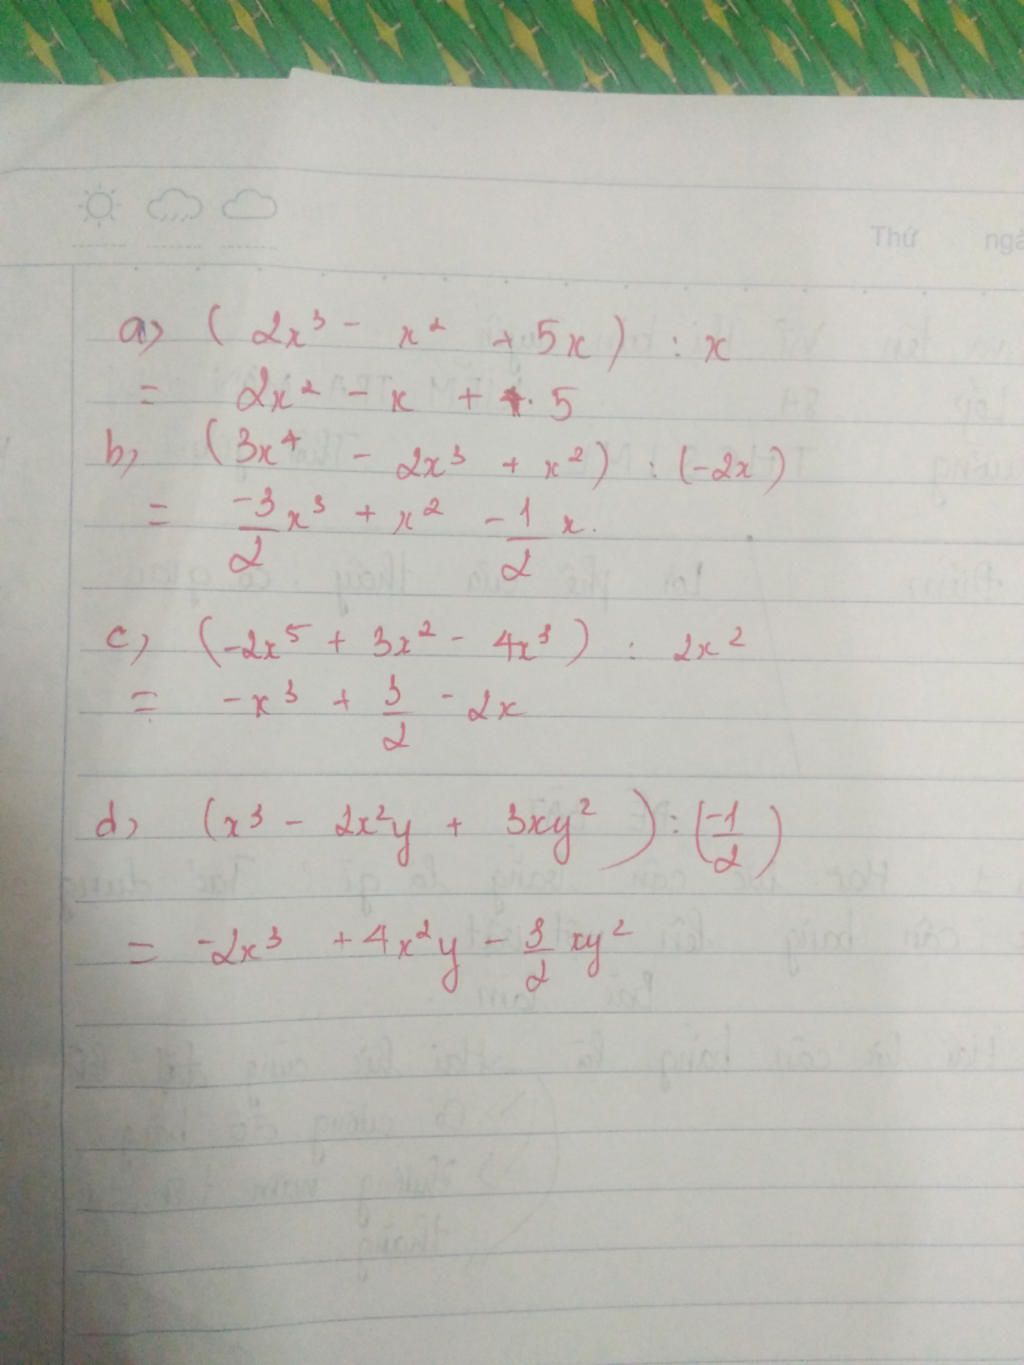 Thứ ngà
a) (2x³ - x² + 5x) : x
= 2x² - x + 5
b) (3x⁴ - 2x³ + x²) : (-2x)
= -3/2 x³ + x² - 1/2 x.
c) (-2x⁵ + 3x² - 4x³) : 2x²
= -x³ + 3/2 - 2x
d) (x³ - 2x²y + 3xy²) : (-1/2)
= -2x³ + 4x²y - 3/2 xy²